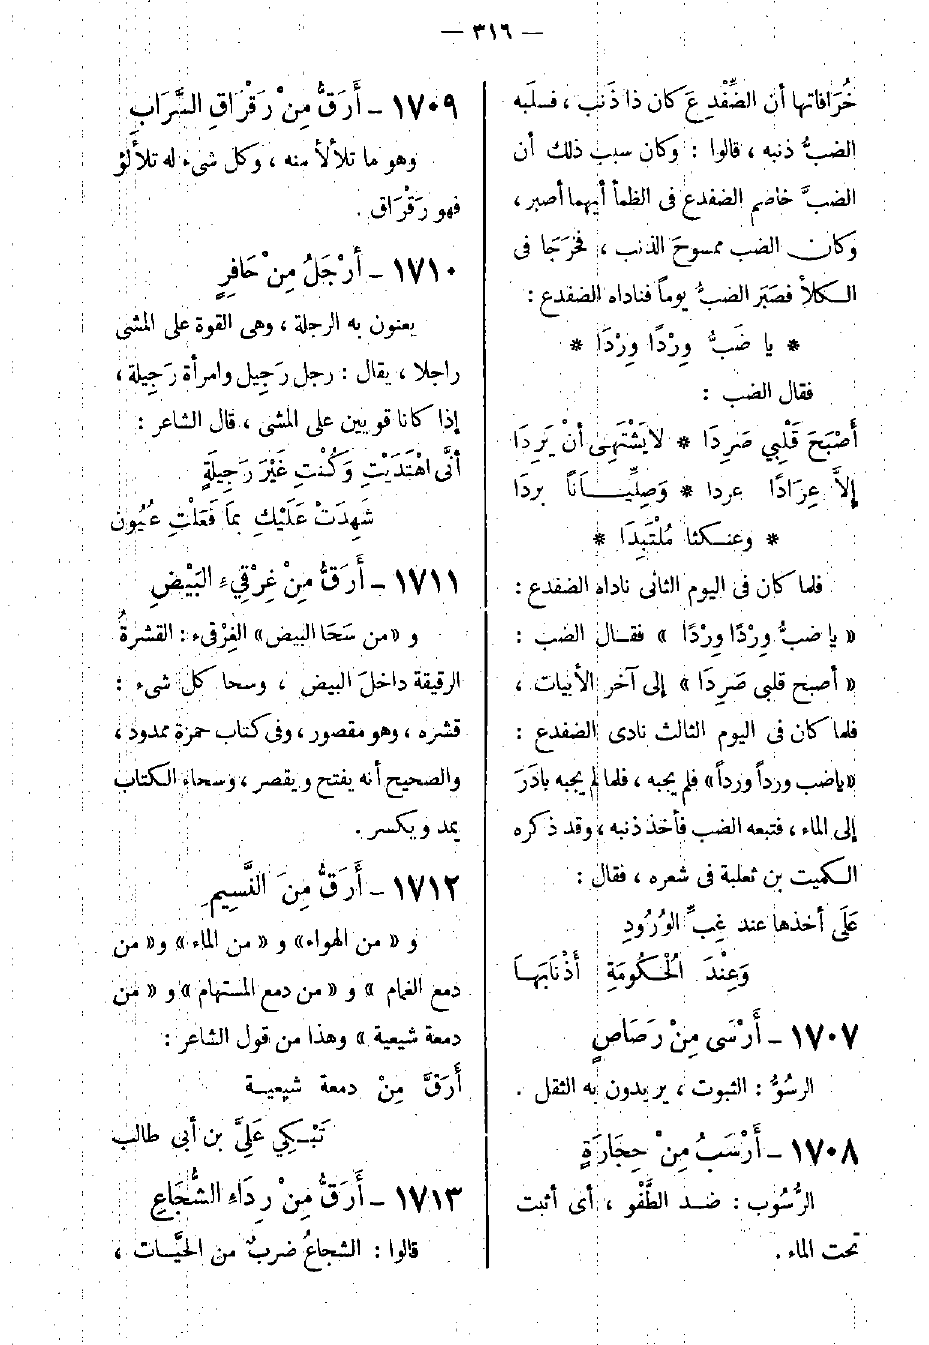 — ٣١٦ —
خُرَافاتها أن الضِّفْدِعَ كان ذا ذَنب ، فسلَبه
الضبُّ ذنبه ، قالوا : وكان سبب ذلك أن
الضبَّ خاصم الضفدع فى الظمأ أيهما أصبر ،
وكان الضب ممسوحَ الذنب ، فخرَجَا فى
الكلأ فصَبَر الضبُّ يوماً فناداه الضفدع :
* يا ضَبُّ وِرْدًا وِرْدَا *
فقال الضب :
أَصْبَحَ قَلْبِي صَرِدَا * لا يَشْتَهِى أنْ يَرِدَا
إلاَّ عِرَادًا عردا * وَصِلِّيَـاناً بردَا
* وعنكثا مُلْتَبِدَا *
فلما كان فى اليوم الثانى ناداه الضفدع :
« يا ضبُّ وِرْدًا وِرْدًا » فقال الضب :
« أصبح قلبى صَرِدَا » إلى آخر الأبيات ،
فلما كان فى اليوم الثالث نادى الضفدع :
«ياضب ورداً ورداً» فلم يجبه ، فلما لم يجبه بادَرَ
إلى الماء ، فتبعه الضب فأخذ ذنبه ، وقد ذكره
الكميت بن ثعلبة فى شعره ، فقال :
عَلَى أخذها عند غِبِّ الوُرُودِ
وَعِنْدَ الْحُكُومَةِ أَذْنَابَهَا
١٧٠٧ - أَرْسَى مِنْ رَصَاصٍ
الرسُوُّ : الثبوت ، يريدون به الثقل .
١٧٠٨ - أَرْسَبُ مِنْ حِجَارَةٍ
الرُّسُوب : ضد الطَّفْو ، أى أثبت
تحت الماء .
١٧٠٩ - أَرَقُّ مِنْ رَقْرَاقِ السَّرَابِ
وهو ما تلألأ منه ، وكل شىء له تلأْلؤ
فهو رَقْرَاق .
١٧١٠ - أَرْجَلُ مِنْ حَافِرٍ
يعنون به الرجلة ، وهى القوة على المشى
راجلا ، يقال : رجل رَجِيل وامرأة رَجِيلة ،
إذا كانا قويين على المشى ، قال الشاعر :
أنَّى اهْتَدَيْتِ وَكُنْتِ غَيْرَ رَجِيلَةٍ
شَهِدَتْ عَلَيْكِ بمَا فَعَلْتِ عُيُون
١٧١١ - أَرَقُّ مِنْ غِرْقِيءِ البَيْضِ
و «من سَحَا البيض» الغِرْقىء : القشرةُ
الرقيقة داخلَ البيض ، وسحا كل شىء :
قشره ، وهو مقصور ، وفى كتاب حمزة ممدود ،
والصحيح أنه يفتح ويقصر ، وسحاء الكتاب
يمد ويكسر .
١٧١٢ - أَرَقُّ مِنَ النَّسِيمِ
و « من الهواء» و « من الماء » و« من
دمع الغمام » و « من دمع المستهام » و « من
دمعة شيعية » وهذا من قول الشاعر :
أَرَقَّ مِنْ دمعة شيعيـة
تَبْـكِي عَلِيَّ بن أبى طالب
١٧١٣ - أَرَقُّ مِنْ رِدَاءِ الشُّجَاعِ
قالوا : الشجاعُ ضربٌ من الحيَّـات ،